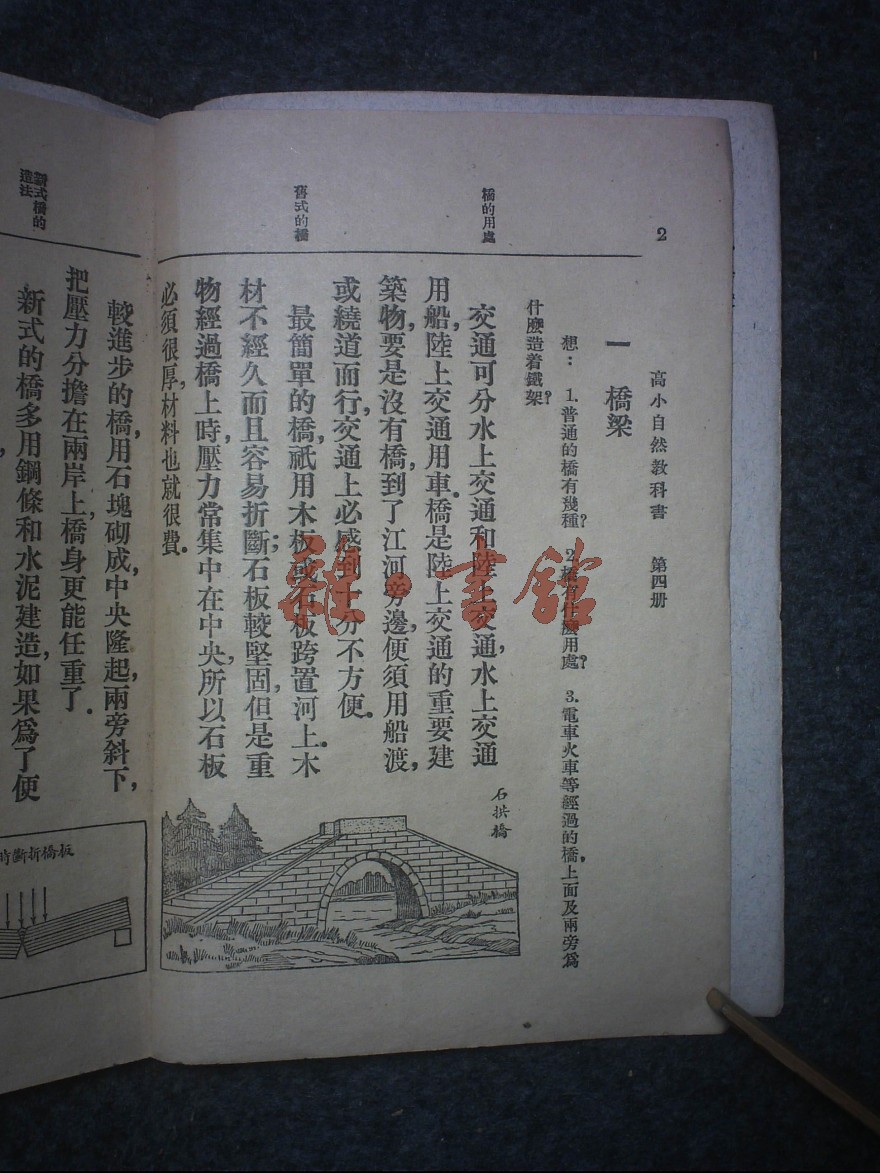 2
高小自然教科書　第四册
一　橋梁
想：1.普通的橋有幾種？2.橋有什麽用處？3.電車火車等經過的橋，上面及兩旁爲
什麽造着鐵架？
橋的用處
交通可分水上交通和陸上交通，水上交通
用船，陸上交通用車。橋是陸上交通的重要建
築物，要是沒有橋，到了江河旁邊，便須用船渡，
或繞道而行，交通上必感到十分不方便。
舊式的橋
最簡單的橋，祇用木板或石板跨置河上。木
材不經久而且容易折斷；石板較堅固，但是重
物經過橋上時，壓力常集中在中央，所以石板
必須很厚，材料也就很費。
石拱橋
新式橋的
造法
較進步的橋，用石塊砌成，中央隆起，兩旁斜下，
把壓力分擔在兩岸上，橋身更能任重了。
新式的橋多用鋼條和水泥建造，如果爲了便
板橋折斷時
雜·書館